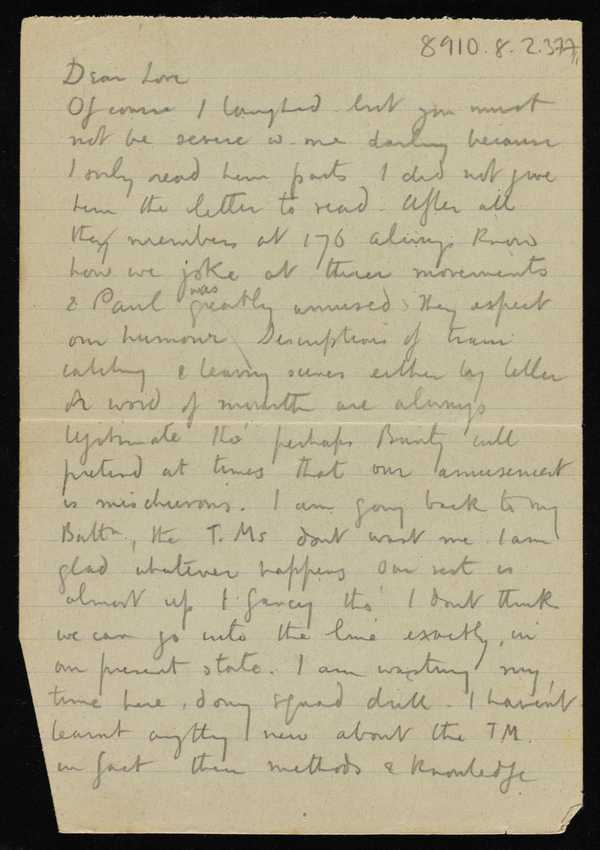 8910.8.2.377,
Dear Love
Of course I laughed but you must
not be severe w. me darling because
I only read him parts I did not give
him the letter to read. After all
they members at 176 always know
how we joke at their movements
& Paul was greatly amused. They expect
our humour. Descriptions of train
catching & leaving scenes either by letter
or word of mouth are always
legitimate tho' perhaps Bunty will
pretend at times that our amusement
is mischievous. I am going back to my
Battn, the T.Ms dont want me. I am
glad whatever happens. Our rest is
almost up I fancy tho' I dont think
we can go into the line exactly, in
our present state. I am wasting my
time here, doing squad drill. I haven't
learnt anything new about the T.M.
in fact their methods & knowledge